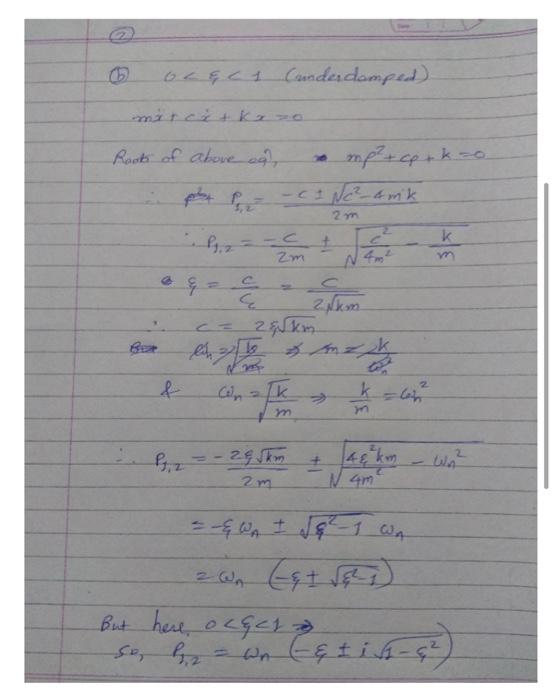 ②
ⓑ 0 < ξ < 1 (underdamped)
mẍ + cẋ + kx = 0
Roots of above eqⁿ, mp² + cp + k = 0
∴ P₁,₂ = (-c ± √(c² - 4mk)) / 2m
∴ P₁,₂ = -c/2m ± √(c²/4m² - k/m)
ξ = c/c_c = c/(2√km)
∴ c = 2ξ√km
& ωₙ = √(k/m) ⇒ k/m = ωₙ²
∴ P₁,₂ = - 2ξ√km/2m ± √(4ξ²km/4m² - ωₙ²)
= -ξωₙ ± √(ξ²-1) ωₙ
= ωₙ (-ξ ± √(ξ²-1))
But here, 0<ξ<1 ⇒
so, P₁,₂ = ωₙ (-ξ ± i √(1-ξ²))